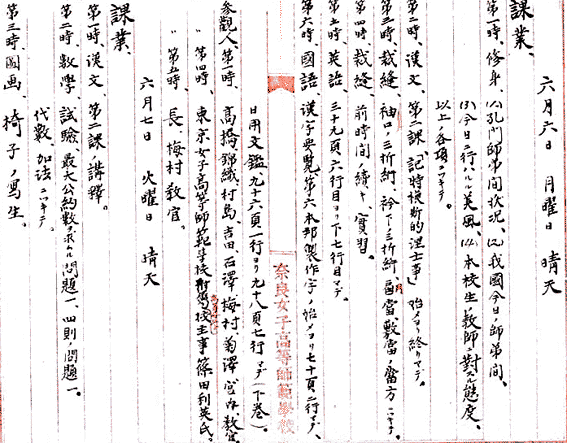 六月六日 月曜日 晴天
課業、
第一時、修身、(1)孔門師弟間状況、(2)我國今日ノ師弟間、
(3)今日ニ行ハルル美風、(4)本校生ノ教師ニ對スル態度、
以上ノ各項ニツキテ。
第二時、漢文、第二課「記時規斯的涅士事」始メヨリ終リマデ。
第三時、裁縫、袖口ノ三折絎、衿下ノ三折絎、居當、敷當ノ當方ニツキテ、
第四時、裁縫、前時間ノ續キ、實習。
第五時、英語、三十九頁、六行目ヨリ下七行目マデ。
第六時、國語、漢字要覧、第六本邦製作字ノ始メヨリ七十一頁二行マデ、
日用文鑑九十六頁一行ヨリ九十八頁七行マデ(下巻)
奈良女子高等師範學校
參觀人、第一時、高橋、錦織、村島、吉田、石澤、梅村、菊澤、宮内、教官
〃 第四時、東京女子高等師範學校附属高校主事篠田利英氏。
〃 第五時、長、梅村教官。
六月七日 火曜日 晴天
課業、
第一時、漢文、第二課ノ講釋。
第二時、數學、試驗、最大公約數ヲ求ムル問題一、四則ノ問題一。
代數、加法ニツキテ。
第三時、圖画 椅子ノ寫生。